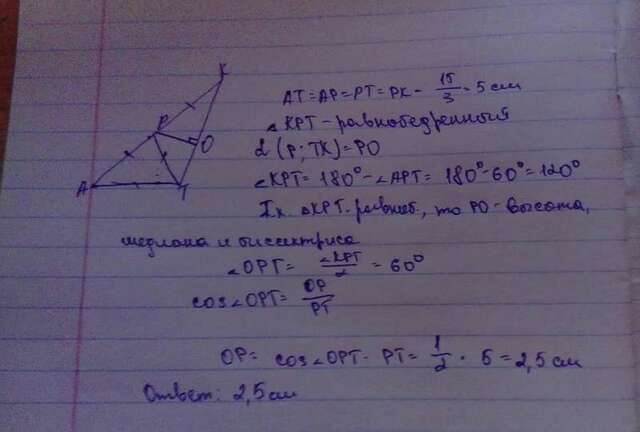 K
P
O
A
T
AT = AP = PT = PK = 15/3 = 5 см
△KPT - равнобедренный
d (P; TK) = PO
∠KPT = 180° - ∠APT = 180° - 60° = 120°
Т.к. △KPT-равноб., то PO - высота,
медиана и биссектриса
∠OPT = ∠KPT/2 = 60°
cos∠OPT = OP/PT
OP = cos∠OPT · PT = 1/2 · 5 = 2,5 см
Ответ: 2,5 см